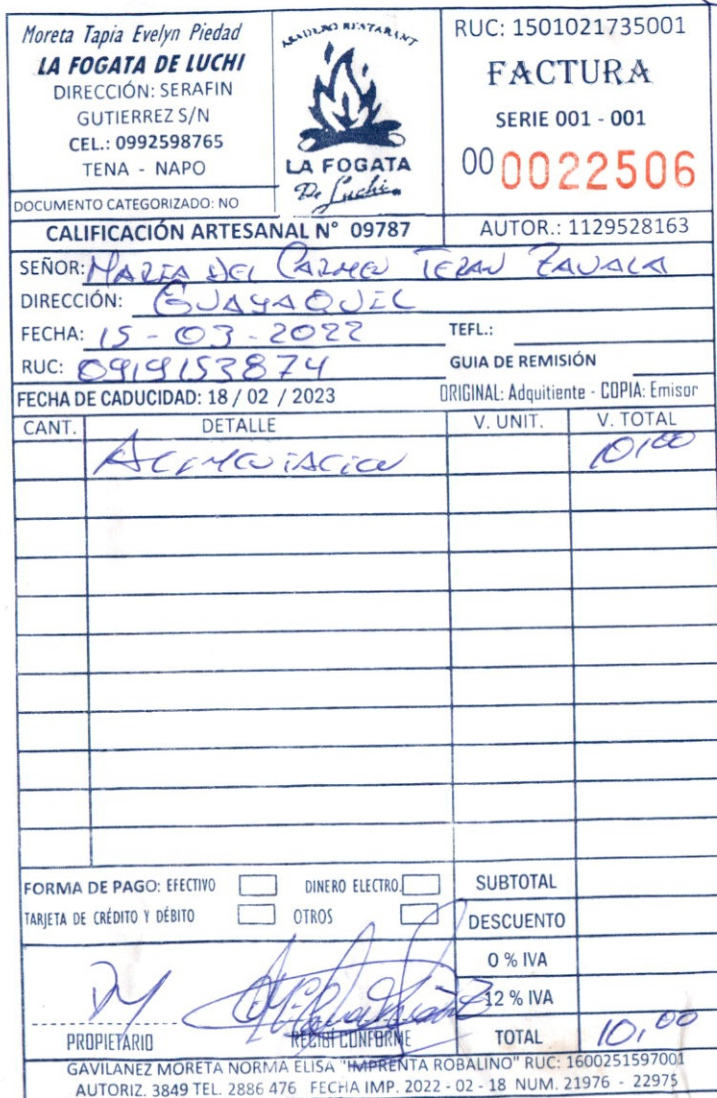 Moreta Tapia Evelyn Piedad
LA FOGATA DE LUCHI
DIRECCIÓN: SERAFIN
GUTIERREZ S/N
CEL.: 0992598765
TENA - NAPO
DOCUMENTO CATEGORIZADO: NO
ASADERO RESTARANT
LA FOGATA
De Luchi
RUC: 1501021735001
FACTURA
SERIE 001 - 001
00 0022506
CALIFICACIÓN ARTESANAL N° 09787
AUTOR.: 1129528163
SEÑOR: MARIA DEL CARMEN TERAN ZAVALA
DIRECCIÓN: GUAYAQUIL
FECHA: 15 - 03 - 2022 TEFL.:
RUC: 0919153874 GUIA DE REMISIÓN
FECHA DE CADUCIDAD: 18 / 02 / 2023 ORIGINAL: Adquitiente - COPIA: Emisor
CANT. DETALLE V. UNIT. V. TOTAL
ALIMENTACION 10,00
FORMA DE PAGO: EFECTIVO DINERO ELECTRO. SUBTOTAL
TARJETA DE CRÉDITO Y DÉBITO OTROS DESCUENTO
0 % IVA
12 % IVA
PROPIETARIO RECIBI CONFORME TOTAL 10,00
GAVILANEZ MORETA NORMA ELISA "IMPRENTA ROBALINO" RUC: 1600251597001
AUTORIZ. 3849 TEL. 2886 476 FECHA IMP. 2022 - 02 - 18 NUM. 21976 - 22975